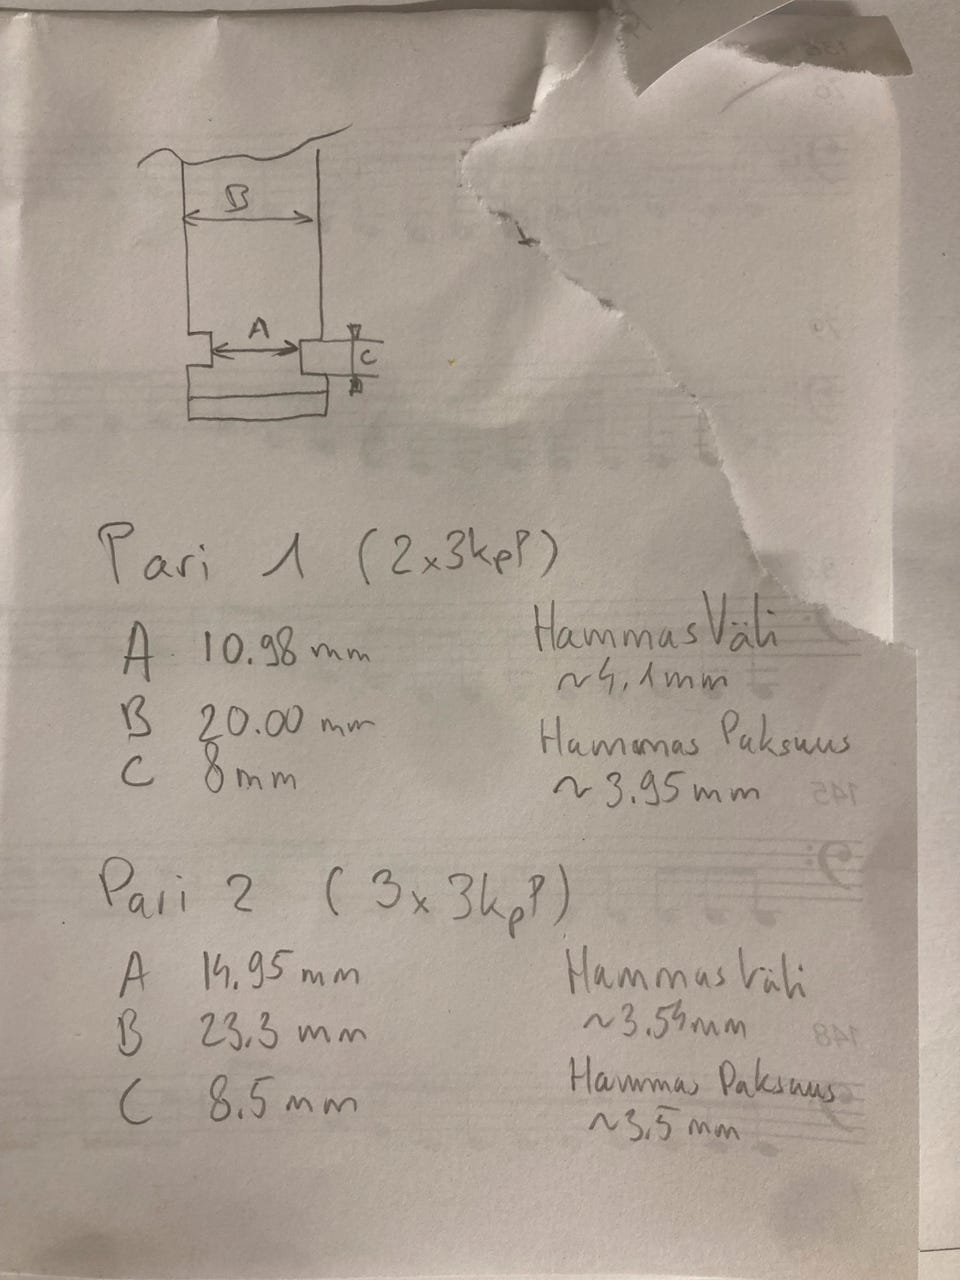 B
A
C
Pari 1 (2x3kpl)
A 10.98 mm
B 20.00 mm
C 8mm
Hammas Väli
~4,1mm
Hammas Paksuus
~3.95mm
Pari 2 (3x3kpl)
A 14.95 mm
B 23.3 mm
C 8.5 mm
Hammas Väli
~3.54mm
Hammas Paksuus
~3,5 mm
145
148